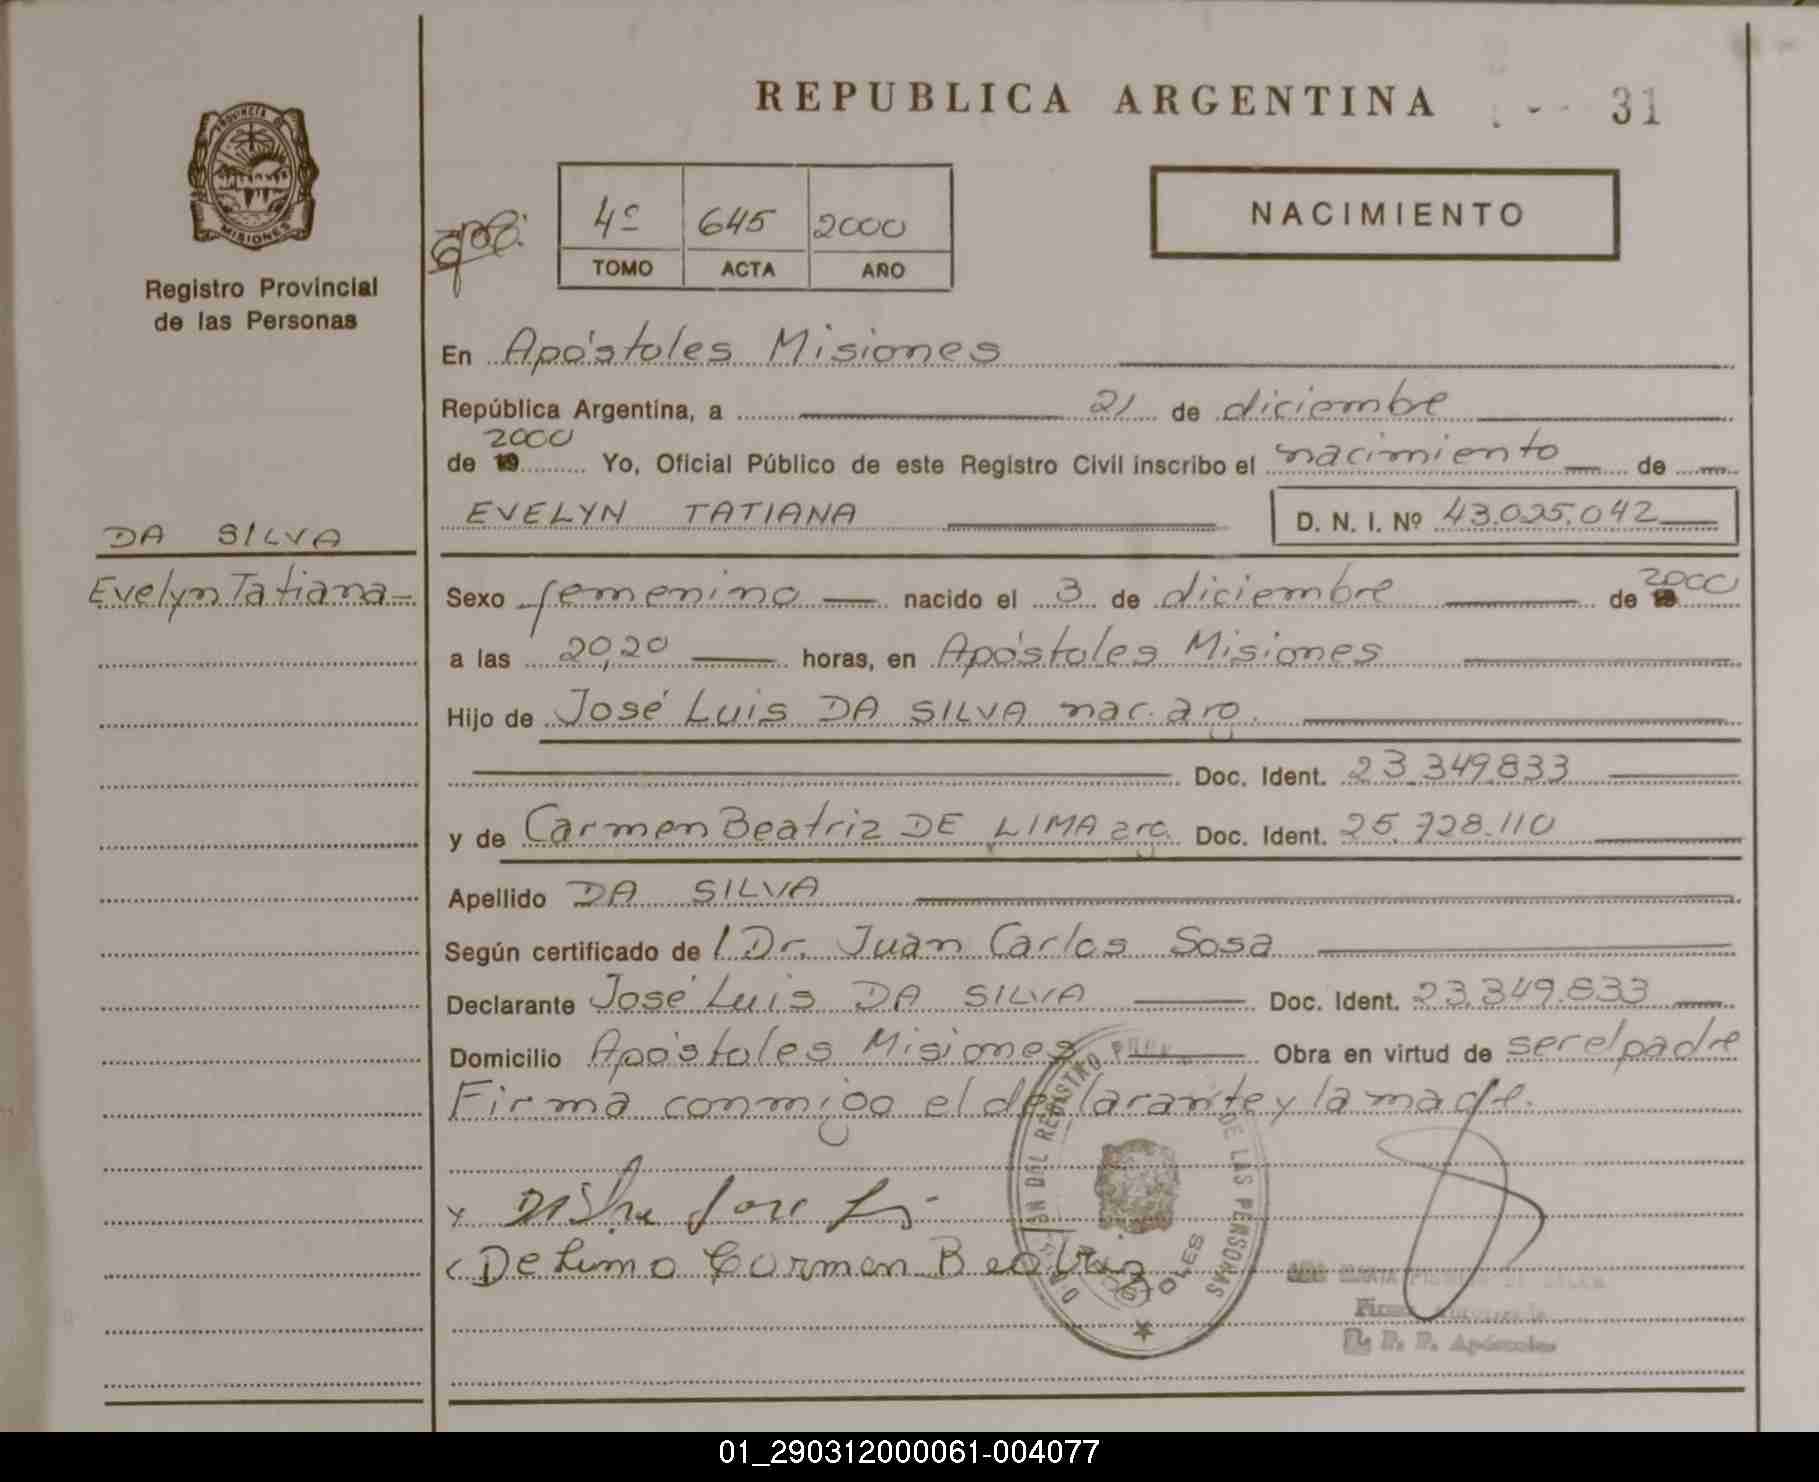 REPUBLICA ARGENTINA
31
PROVINCIA DE
MISIONES
Registro Provincial
de las Personas
4º 645 2000
TOMO ACTA AÑO
NACIMIENTO
En Apóstoles Misiones
República Argentina, a 21 de diciembre
2000
de 19 Yo, Oficial Público de este Registro Civil inscribo el nacimiento de
EVELYN TATIANA D. N. I. Nº 43.025.042
DA SILVA
Evelyn Tatiana
Sexo femenino nacido el 3 de diciembre de 2000
a las 20,20 horas, en Apóstoles Misiones
Hijo de José Luis DA SILVA nac. arg.
Doc. Ident. 23.349.833
y de Carmen Beatriz DE LIMA arg. Doc. Ident. 25.728.110
Apellido DA SILVA
Según certificado de l Dr. Juan Carlos Sosa
Declarante José Luis DA SILVA Doc. Ident. 23.349.833
Domicilio Apóstoles Misiones Obra en virtud de ser el padre
Firma conmigo el declarante y la madre.
Da Silva Jose Luis
De Lima Carmen Beatriz
DEL REGISTRO DE LAS PERSONAS
Firma
R. P. P. Apóstoles
01_290312000061-004077